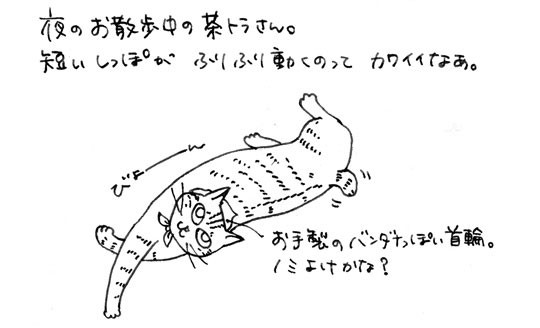 夜のお散歩中の茶トラさん。
短いしっぽが ふりふり動くのって カワイイなあ。
びよーーん
お手製のバンダナっぽい首輪。
ノミよけかな?